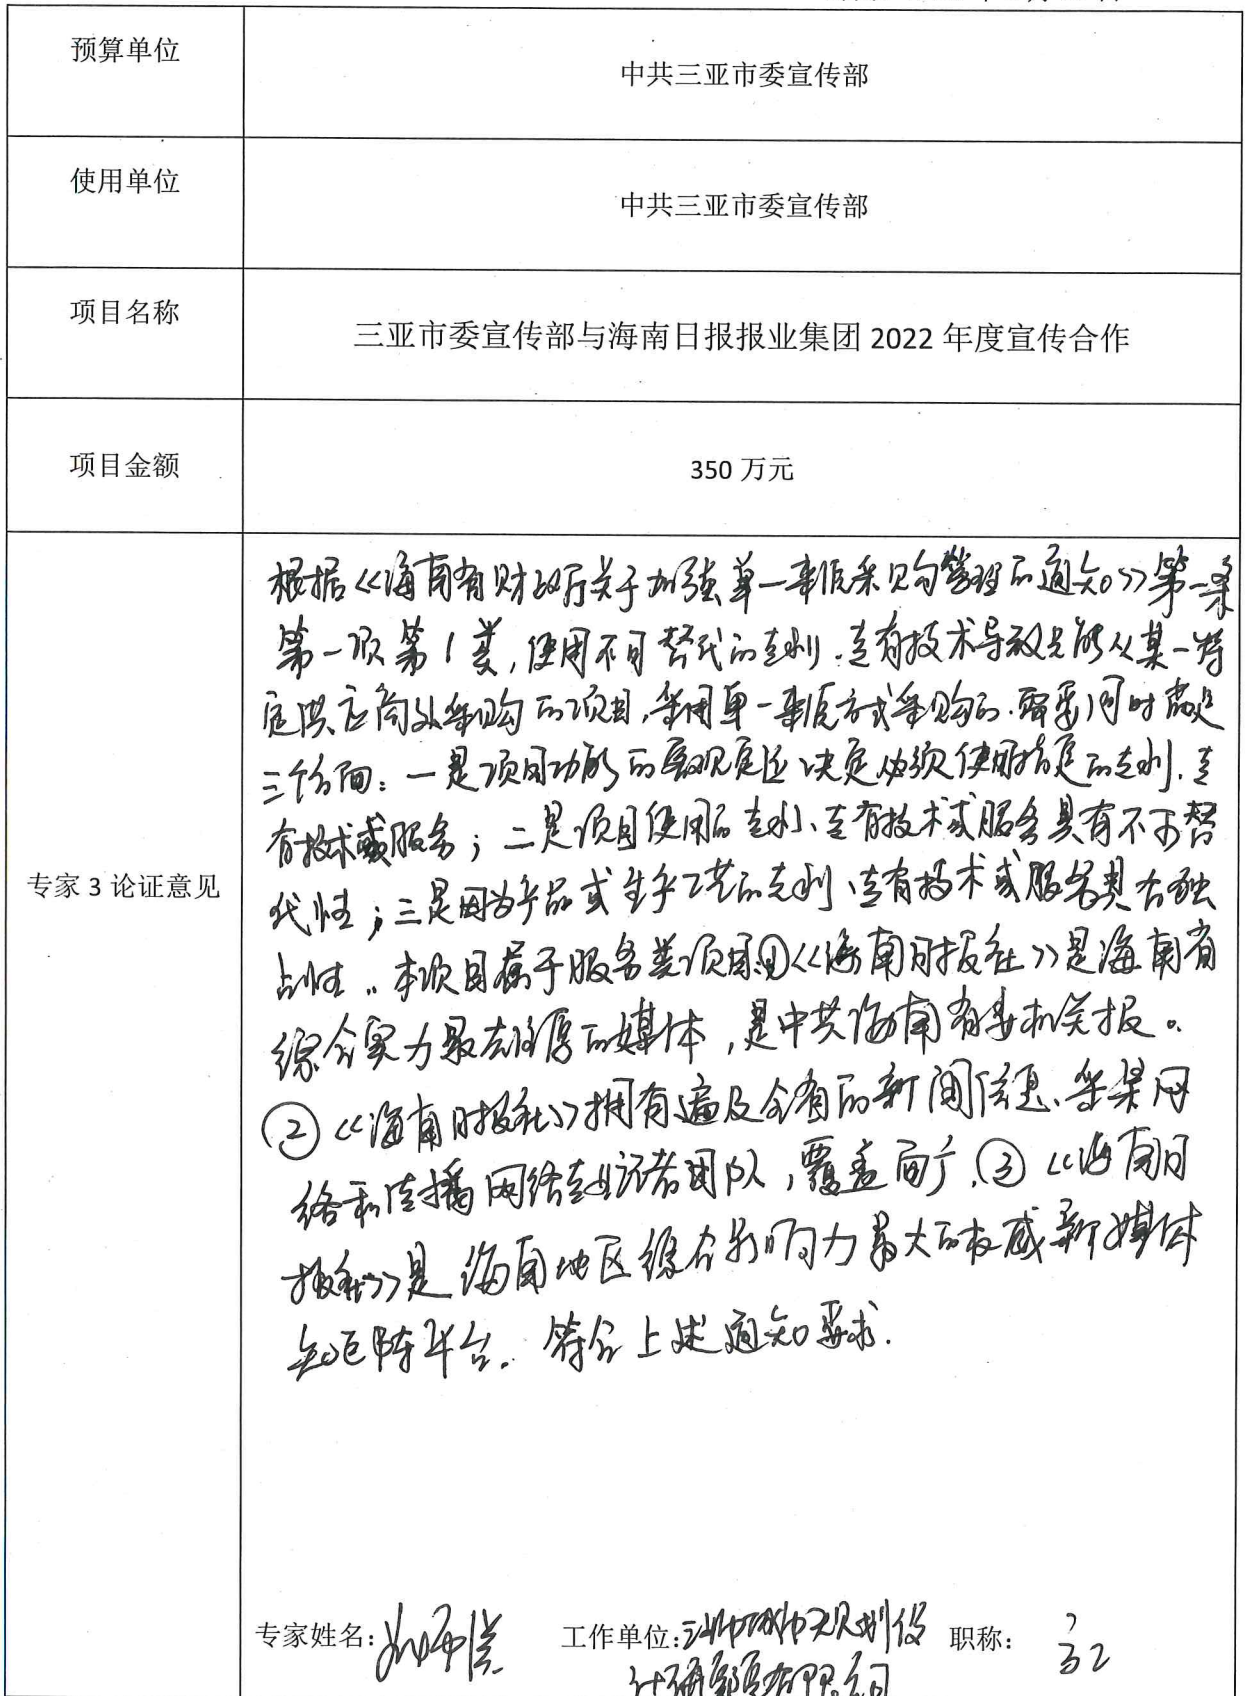 预算单位
中共三亚市委宣传部
使用单位
中共三亚市委宣传部
项目名称
三亚市委宣传部与海南日报报业集团 2022 年度宣传合作
项目金额
350 万元
专家 3 论证意见
根据《海南省财政厅关于加强单一来源采购管理的通知》第一条
第一项第1类,使用不可替代的专利、专有技术导致只能从某一特
定供应商处采购的项目,采用单一来源方式采购的,需要同时满足
三个方面:一是项目功能的客观定位决定必须使用指定的专利、专
有技术或服务;二是项目使用的专利、专有技术或服务具有不可替
代性;三是因为产品或生产工艺的专利、专有技术或服务具有独
占性。本项目属于服务类项目①《海南日报社》是海南省
综合实力最雄厚的媒体,是中共海南省委机关报。
②《海南日报社》拥有遍及全省的新闻信息、采集网
络和传播网络专业记者团队,覆盖面广,③《海南日
报社》是海南地区综合影响力最大的权威新媒体
矩阵平台。符合上述通知要求.
专家姓名: 工作单位: 规划设 职称: 高工
计研究院有限公司